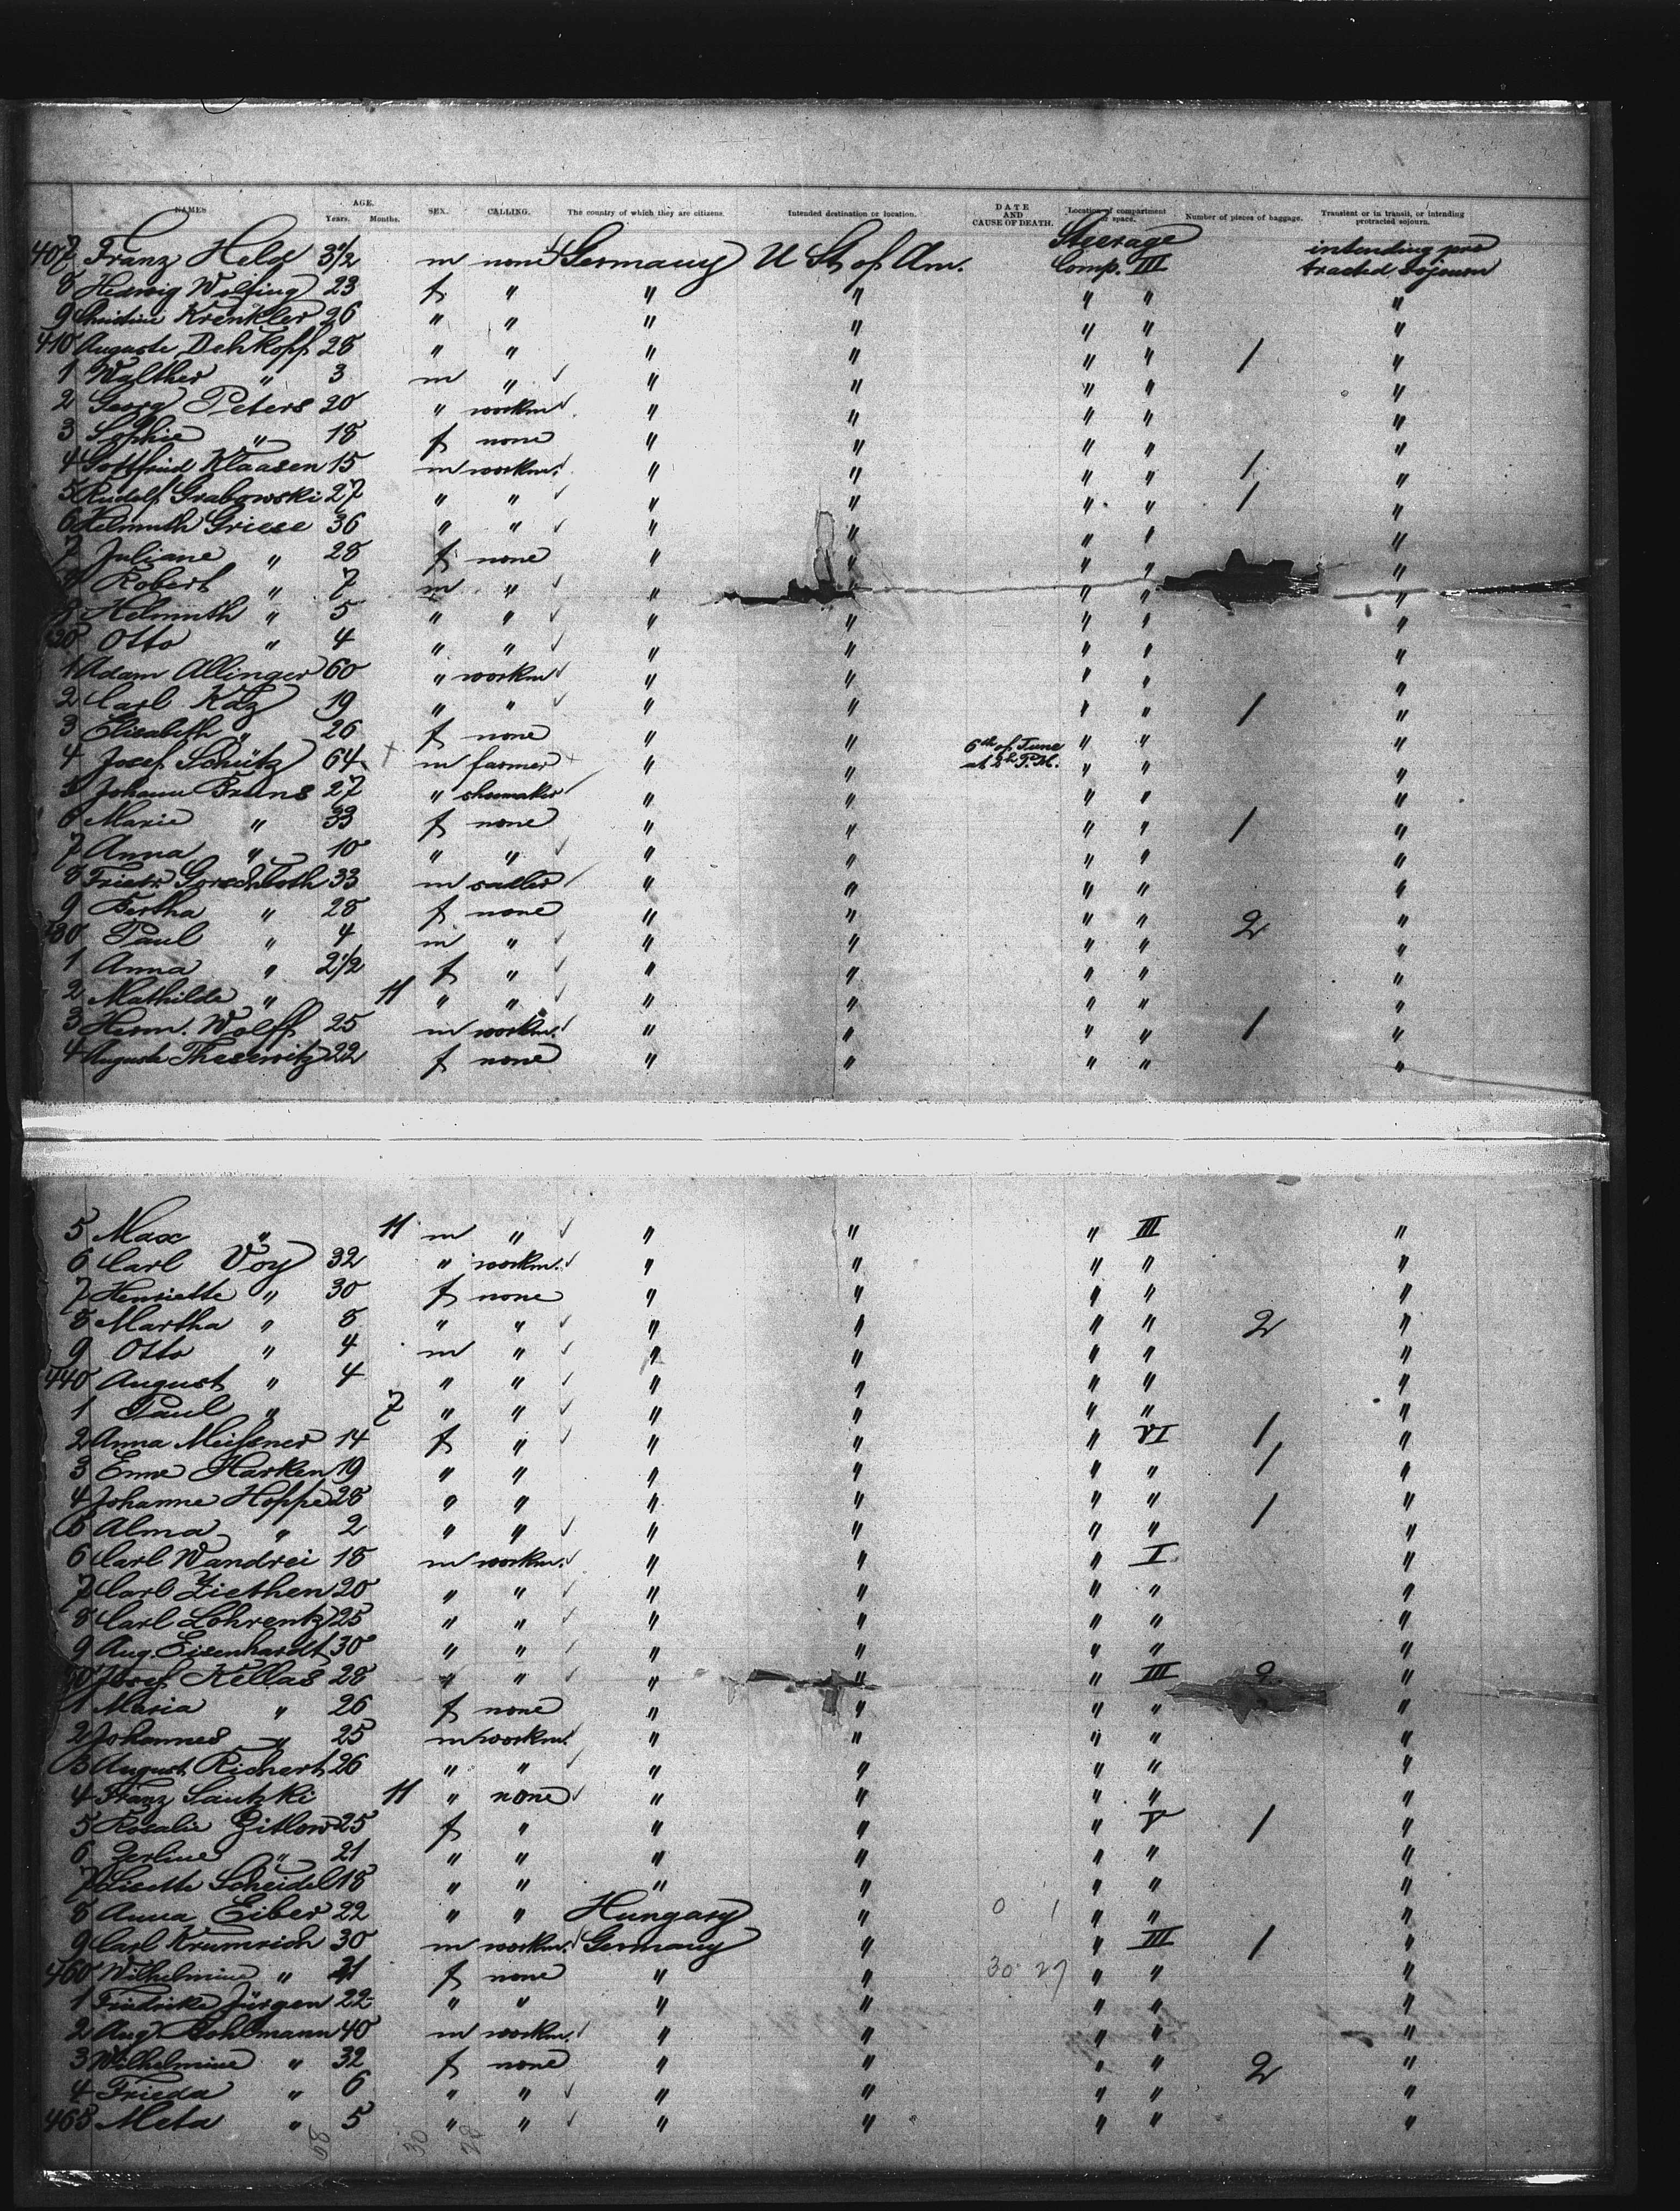 NAMES AGE. Years. Months. SEX. CALLING. The country of which they are citizens. Intended destination or location. DATE AND CAUSE OF DEATH. Location of compartment or space. Number of pieces of baggage. Transient or in transit, or intending protracted sojourn.
407 Franz Held 3 1/2 m none Germany U St of Am. Steerage Comp. III intending protracted sojourn
8 Hedwig Wilfing 23 f " " " " " "
9 Christine Krenkler 26 " " " " " " "
410 Auguste Dehkopf 28 " " " " " " 1 "
1 Walther " 3 m " " " " " "
2 Georg Peters 20 " workm " " " " "
3 Sophie " 18 f none " " " " "
4 Gottfried Klaasen 15 m workm. " " " " 1 "
5 Rudolf Grabowski 27 " " " " " " 1 "
6 Helmuth Griese 36 " " " " " " "
7 Juliane " 28 f none " " " " "
8 Robert " 7 m " " " " " "
9 Helmuth " 5 " " " " " " "
420 Otto " 4 " " " " " " "
1 Adam Allinger 60 " workm " " " " "
2 Carl Katz 19 " " " " " " 1 "
3 Elisabeth " 26 f none " " " " "
4 Josef Schütz 64 m farmer " " 6th of June at 2h P.M. " " "
5 Johann Bruns 27 " shoemaker " " " " "
6 Marie " 33 f none " " " " 1 "
7 Anna " 10 " " " " " " "
8 Friedr. Gorschboth 33 m sadler " " " " "
9 Bertha " 28 f none " " " " 2 "
430 Paul " 4 m " " " " " "
1 Anna " 2 1/2 f " " " " " "
2 Mathilde " 11 " " " " " " "
3 Herm. Wolff 25 m workm. " " " " 1 "
4 Auguste Thesewitz 22 f none " " " " "
5 Max " 11 m " " " " III "
6 Carl Voy 32 " workm. " " " " "
7 Henriette " 30 f none " " " " "
8 Martha " 8 " " " " " " 2 "
9 Otto " 4 m " " " " " "
440 August " 4 " " " " " " "
1 Paul " 7 " " " " " " "
2 Anna Meißner 14 f " " " " VI 1 "
3 Enne Harken 19 " " " " " " 1 "
4 Johanne Hoppe 28 " " " " " " 1 "
5 Alma " 2 " " " " " " "
6 Carl Wandrei 18 m workm. " " " I "
7 Carl Ziethen 20 " " " " " " "
8 Carl Lohrentz 25 " " " " " " "
9 Aug. Eisenhardt 30 " " " " " " "
450 Josef Kellas 28 " " " " " III 2 "
1 Maria " 26 f none " " " " "
2 Johannes " 25 m workm. " " " " "
3 August Richert 26 " " " " " " "
4 Franz Lautzki 11 " none " " " " "
5 Rosalie Zitlow 25 f " " " " V 1 "
6 Zerline " 21 " " " " " " "
7 Lisette Scheidel 18 " " " " " " "
8 Anna Eiber 22 " " Hungary " 0 1 " " "
9 Carl Krumrich 30 m workm. Germany " " III 1 "
460 Wilhelmine " 21 f none " " 30 27 " " "
1 Friedrike Jürgen 22 " " " " " " "
2 Aug. Pohlmann 40 m workm. " " " " "
3 Wilhelmine " 32 f none " " " " 2 "
4 Frieda " 6 " " " " " " "
465 Meta " 5 " " " " " " "